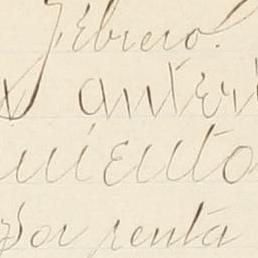 Febrero.
anteri
miento
por renta